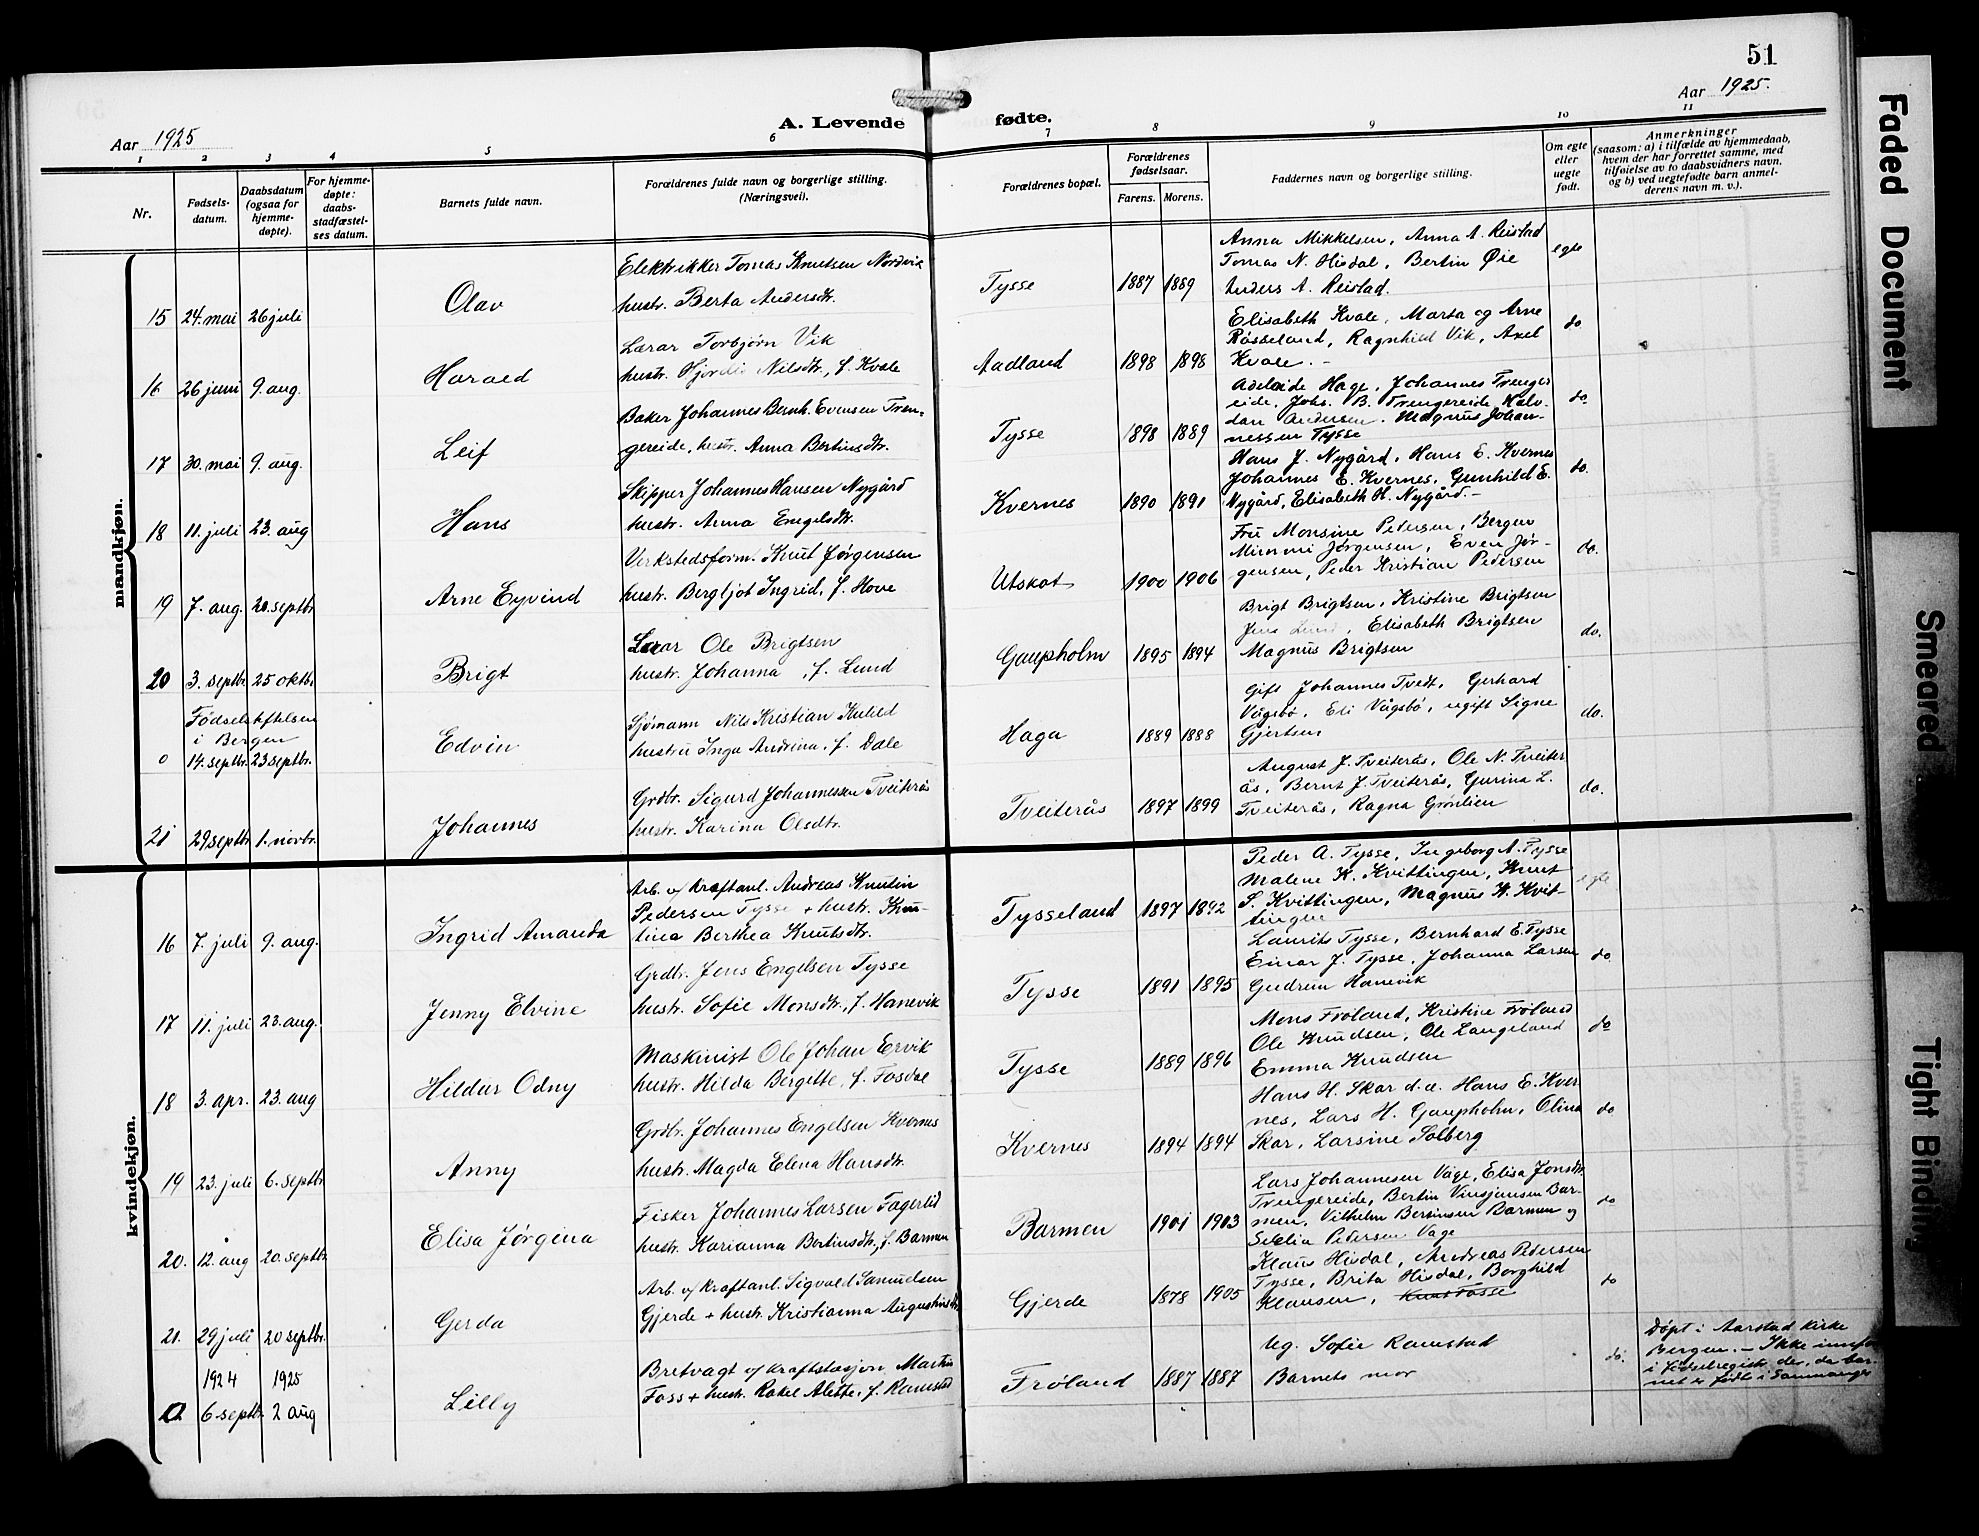 51
Aar 1925
A. Levende fødte.
Aar 1925.
1 2 3 4 5 6 7 8 9 10 11
Nr.
Fødsels-
datum.
Daabsdatum
(ogsaa for
hjemme-
døpte).
For hjemme-
døpte:
daabs-
stadfæstel-
ses datum.
Barnets fulde navn.
Forældrenes fulde navn og borgerlige stilling.
(Næringsvei).
Forældrenes bopæl.
Forældrenes
fødselsaar.
Farens. Morens.
Faddernes navn og borgerlige stilling.
Om egte
eller
uegte
født.
Anmerkninger
(saasom: a) i tilfælde av hjemmedaab,
hvem der har forrettet samme, med
tilføielse av to daabsvidners navn.
og b) ved uegtefødte barn anmel-
derens navn m. v.).
mandkjøn.
15 24. mai 26 juli Olav
Elektrikker Tomas Knutsen Nordvik
hustr. Berta Andersdtr.
Tysse 1887 1889
Anna Mikkelsen, Anna A. Reistad
Tomas N. Hisdal, Bertin Øie
Anders A. Reistad.
egte
16 26 juni 9. aug. Harald
Lærar Torbjørn Vik
hustr. Hjordis Nilsdtr., f. Kvale
Aadland 1898 1898
Elisabeth Kvale, Marta og Arne
Røsseland, Ragnhild Vik, Axel
Kvale. –
do
17 30. mai 9. aug. Leif
Baker Johannes Bernh. Evensen Tren-
gereide, hustr. Anna Bertinsdtr.
Tysse 1898 1889
Adelaide Hage, Johannes Trenger
eide, Johs. B. Trengereide, Halv-
dan Andersen. Magnus Johan-
nessen Tysse
do.
18 11. juli 23. aug Hans
Skipper Johannes Hansen Nygård
hustr. Anna Engelsdtr.
Kvernes 1890 1891
Hans J. Nygård, Hans E. Kvernes
Johannes E. Kvernes, Gunhild E.
Nygård, Elisabeth H. Nygård. –
do.
19 7. aug. 20. septbr. Arne Eyvind
Verkstedsform. Knut Jørgensen
hustr. Bergljot Ingrid, f. Hove
Utskot 1900 1906
Fru Monsine Petersen, Bergen
Mimmi Jørgensen, Even Jør-
gensen, Peder Kristian Pedersen
do.
20 3. septbr. 25 oktbr. Brigt
Lærar Ole Brigtsen
hustr. Johanna, f. Lund
Gaupholm 1895 1894
Brigt Brigtsen, Kristine Brigtsen
Jens Lund, Elisabeth Brigtsen
Magnus Brigtsen
do.
Fødselsstiftelsen
i Bergen
0 14. septbr. 23 septbr. Edvin
Sjømann Nils Kristian Kulild
hustru Inga Andrina, f. Dale
Haga 1889 1888
Gift Johannes Tvedt, Gerhard
Vågsbø, Eli Vågsbø, ugift Signe
Gjertsen
do.
21 29 septbr. 1. novbr. Johannes
Grdbr. Sigurd Johannessen Tveiterås
hustr. Karina Olsdtr.
Tveiterås 1897 1899
August J. Tveiterås, Ole N. Tveiter
ås, Bernt J. Tveiterås, Gurina L.
Tveiterås, Ragna Grønlien
do.
kvindekjøn.
16 7. juli 9. aug. Ingrid Amanda
Arb. v/ Kraftanl. Andreas Knutin
Pedersen Tysse + hustr. Knu-
tina Berthea Knutsdtr.
Tysseland 1897 1892
Peder A. Tysse, Ingeborg A. Tysse
Malene K. Kvittingen, Knut
S. Kvittingen, Magnus K. Kvit
tingen
egte
17 11. juli 23. aug. Jenny Elvine
Grdbr. Jens Engelsen Tysse
hustr. Sofie Monsdtr, f. Hanevik
Tysse 1891 1895
Laurits Tysse, Bernhard E. Tysse
Einar J. Tysse, Johanna Larsen
Gudrun Hanevik
do.
18 3. apr. 23. aug Hildur Odny
Maskinist Ole Johan Ervik
hustr. Hilda Bergitte, f. Fosdal
Tysse 1889 1896
Mons Frøland, Kristine Frøland
Ole Knudsen, Ole Langeland
Emma Knudsen
do
19 23. juli 6. septbr. Anny
Grdbr. Johannes Engelsen Kvernes
hustr. Magda Elena Hansdtr.
Kvernes 1894 1894
Hans H. Skar d.e. Hans E. Kver
nes, Lars H. Gaupholm, Olina
Skar, Larsine Solberg
do
20. 12. aug 20. septbr. Elisa Jørgina
Fisker Johannes Larsen Fagerlid
hustr. Karianna Bertinsdtr, f. Barmen
Barmen 1901 1903
Lars Johannesen Våge, Elisa Jonsdtr.
Trengereide, Bertin Vinsjansen Bar-
men, Vilhelm Bertinsen Barmen og
Pedersen Våge
do
21. 29 juli 20 septbr. Gerda
Arb. v/ Kraftanl. Sigvald Samuelsen
Gjerde + hustr. Kristianna Augustinsdtr
Gjerde 1878 1905
Klaus Hisdal, Andreas Pedersen
Tysse, Brita Hisdal, Borghild
Klausen,
do
1924 1925
0 6. septbr. 2 aug Lilly
Bretvagt v/ kraftstasjon Martin
Foss + hustr. Rakel Alette, f. Ramstad
Frøland 1887 1887
Ug. Sofie Ramstad
Barnets mor
do.
Døpt i Aarstad kirke
Bergen. – Ikke innført
i fødselregist. der, da bar-
net er født i Samnanger
Faded Document
Smeared
Tight Binding